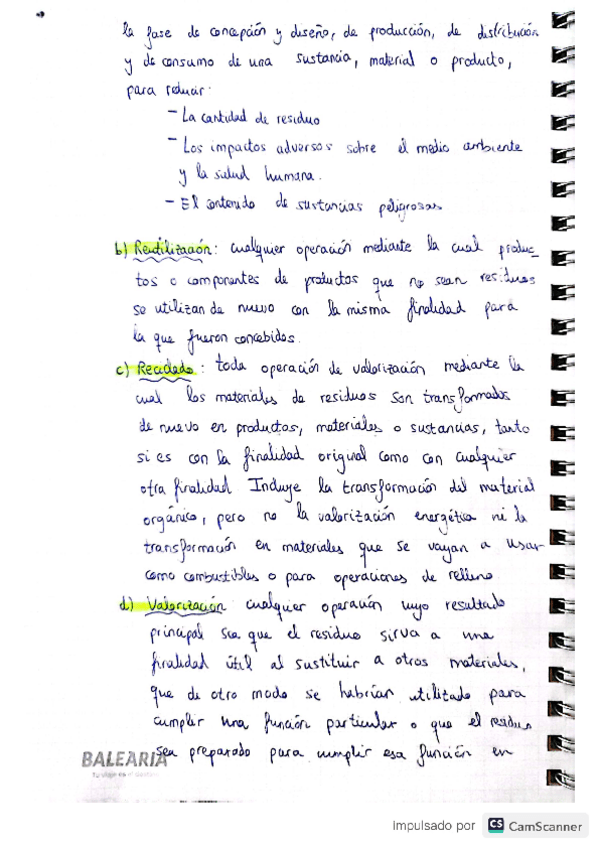 la fase de concepción y diseño, de producción, de distribución
y de consumo de una sustancia, material o producto,
para reducir:
- La cantidad de residuo
- Los impactos adversos sobre el medio ambiente
y la salud humana.
- El contenido de sustancias peligrosas
b) Reutilización: cualquier operación mediante la cual produc-
tos o componentes de productos que no sean residuos
se utilizan de nuevo con la misma finalidad para
la que fueron concebidos.
c) Reciclado: toda operación de valorización mediante la
cual los materiales de residuos son transformados
de nuevo en productos, materiales o sustancias, tanto
si es con la finalidad original como con cualquier
otra finalidad Incluye la transformación del material
orgánico, pero no la valorización energética ni la
transformación en materiales que se vayan a usar
como combustibles o para operaciones de relleno
d) Valorización cualquier operación cuyo resultado
principal sea que el residuo sirva a una
finalidad útil al sustituir a otros materiales,
que de otro modo se habrían utilizado para
cumplir una función particular o que el residuo
sea preparado para cumplir esa función en
BALEARIA
Impulsado por CS CamScanner